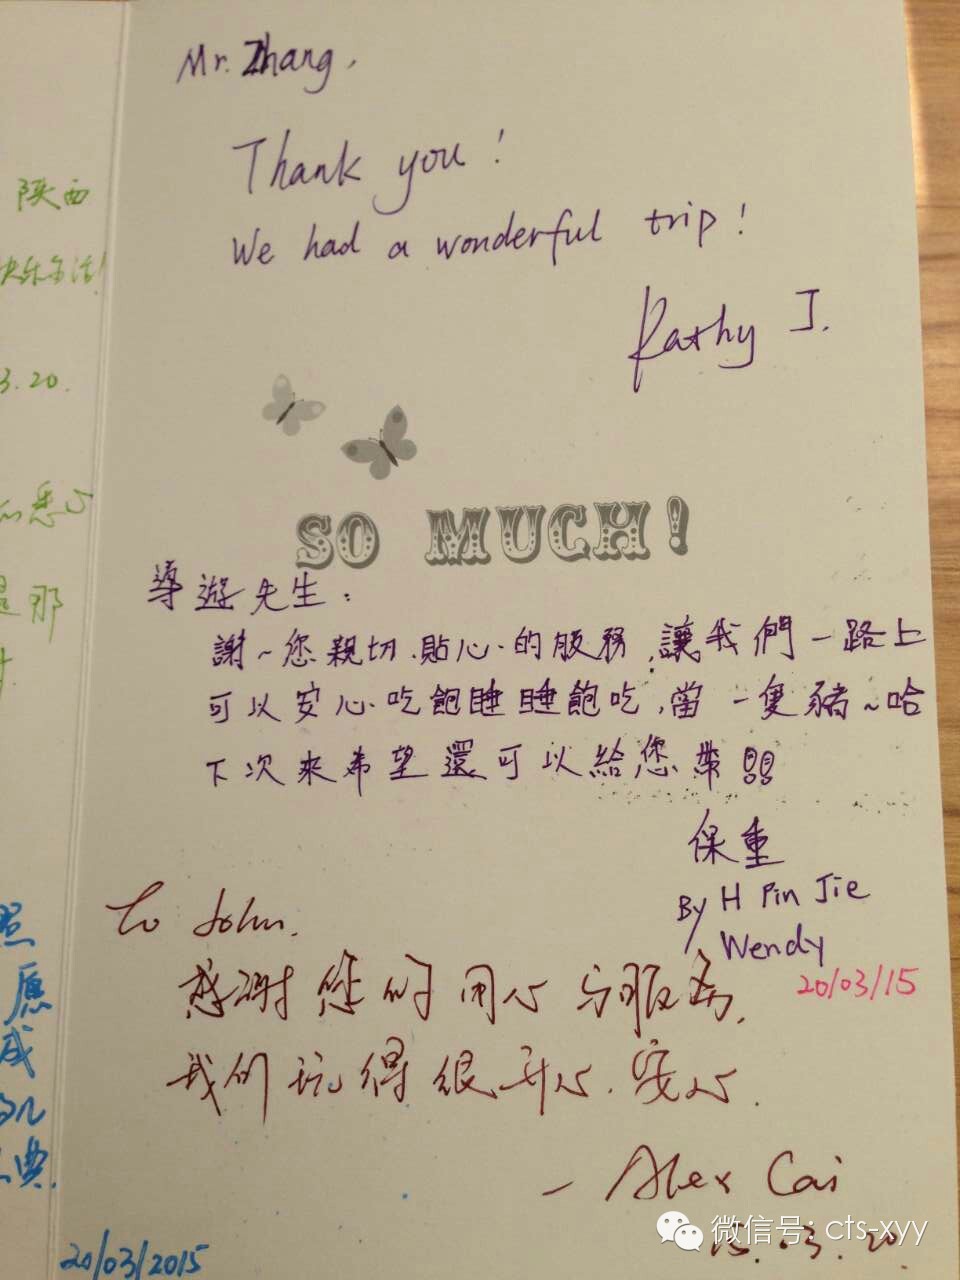 Mr. Zhang,
Thank you!
We had a wonderful trip!
Kathy J.
SO MUCH!
導遊先生:
謝~您親切、貼心的服務,讓我們一路上
可以安心吃飽睡睡飽吃,當一隻豬~哈
下次來希望還可以給您帶!!
保重
By H Pin Jie
Wendy
20/03/15
To John.
感谢您的用心与服务,
我们玩得很开心、安心.
- Alex Cai
15.03.20
陕西
3.20.
悉心
那
照
愿
成
典.
20/03/2015
微信号: cts-xyy